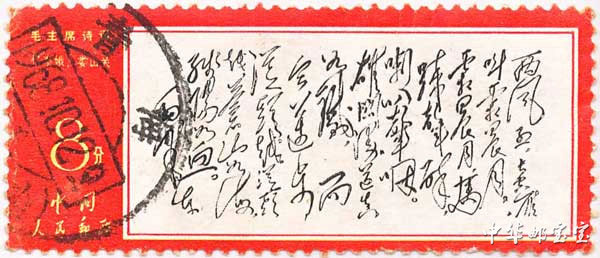 毛主席诗词
忆秦娥·娄山关
8分
中国
人民邮政
西风烈 长空雁
叫霜晨月
霜晨月 马
蹄声碎
喇叭声咽
雄关漫道真
如铁 而
今迈步
从头越 从头
越 苍山如海
残阳如血
毛泽东